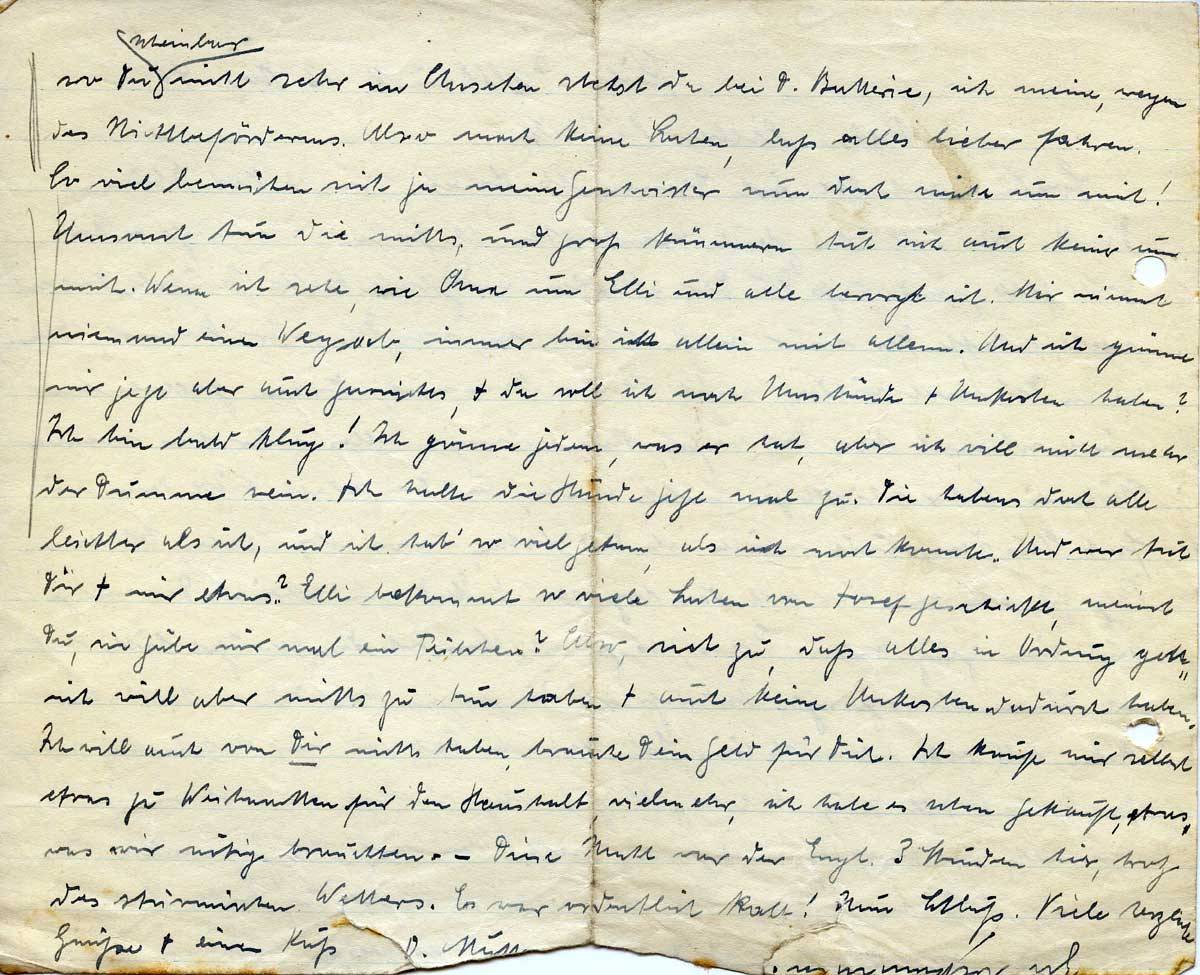 scheinbar
wo Du nicht sehr im Ansehen stehst da bei d. Batterie, ich meine, wegen
des Nichtbeförderns. Also mach keine Sachen, lass alles lieber fahren.
So viel bemühen sich ja meine Geschwister nun doch nicht um mich!
Umsonst tun die nichts, und gross kümmern tut sich auch keiner um
mich. Wenn ich sehe, wie Oma um Elli und alle besorgt ist. Mir nimmt
niemand einen Weg ab, immer bin ich allein mit allem. Und ich gönne
mir jetzt aber auch garnichts, + da soll ich noch Umstände + Unkosten haben?
Ich bin bald klug! Ich gönne jedem, was er hat, aber ich will nicht mehr
der Dumme sein. Ich halte die Hände jetzt mal zu. Die habens doch alle
leichter als ich, und ich hab' so viel getan, als ich noch konnte. Und wer tut
Dir + mir etwas? Elli bekommt so viele Sachen von Josef geschickt, meinst
Du, sie gäbe mir mal ein Teilchen? Also, sieh zu, dass alles in Ordnung geht,
ich will aber nichts zu tun haben + auch keine Unkosten dadurch haben.
Ich will auch von Dir nichts haben, brauche Dein Geld für Dich. Ich kaufe mir selbst
etwas zu Weihnachten für den Haushalt, vielmehr, ich habe es schon gekauft, etwas,
was wir nötig brauchten. – Diese Nacht war der Engl. 3 Stunden hier, trotz
des stürmischen Wetters. Es war ordentlich kalt! Nun Schluss. Viele herzliche
Grüsse + einen Kuss D.